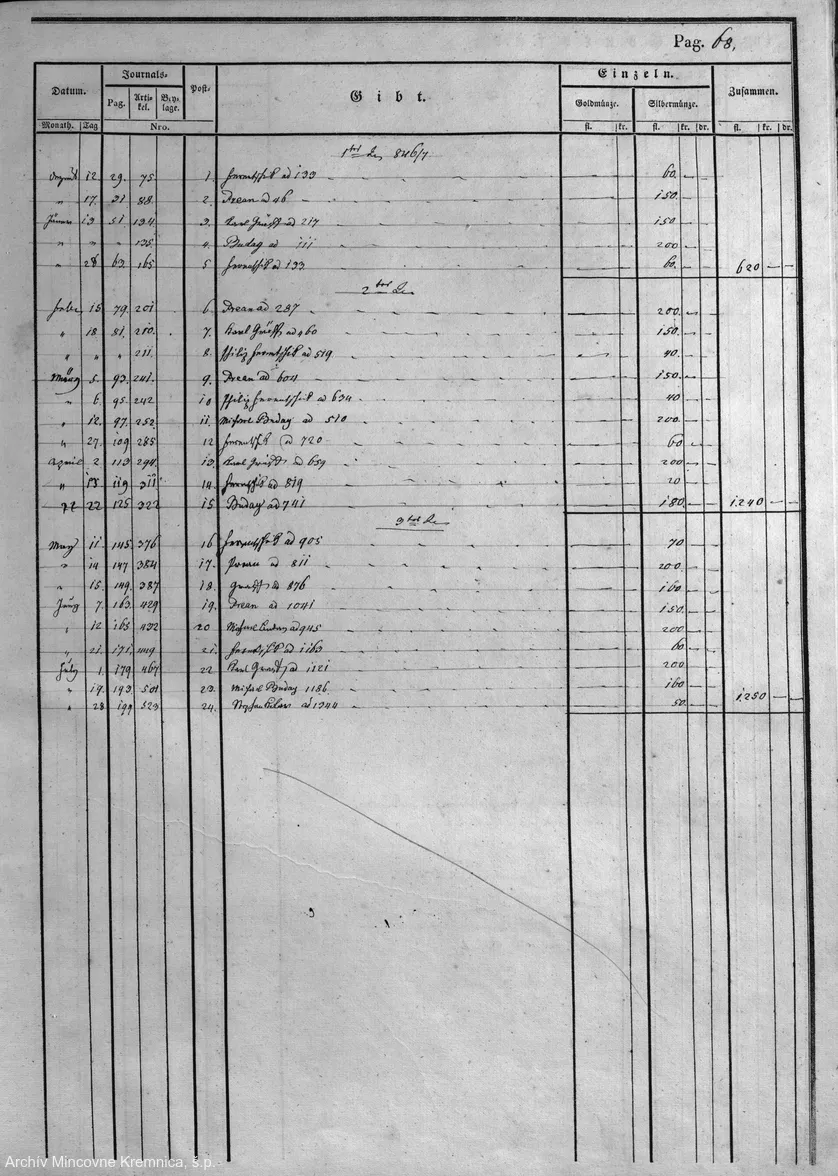 Pag. 68.
Datum. Journals- Post- Gibt. Einzeln. Zusammen.
Pag. Arti-kel. Bey-lage. Goldmünze. Silbermünze.
Monath. Tag Nro. fl. kr. fl. kr. dr. fl. kr. dr.
1ter 846/7
12 29. 75 1. ad 133 60.
" 17. 31 88. 2. Drean ad 46 150.
Jänner 13 51 134 3. Karl ad 217 150
" " " 135 4. Budag ad 111 200
" 28 63 165 5 ad 133 60. 620
2ter
15 79. 201 6 Drean ad 287 200.
" 18. 81. 210. 7. Karl ad 460 150.
" " " 211 8. Philip ad 519 40.
März 5. 93. 241. 9. Drean ad 604 150.
" 6 95. 242 10 Philip ad 634 40
" 12. 97. 252 11. Michael Budag ad 510 200.
" 27. 109 285 12 ad 720 60
April 2 113 294. 13. Karl ad 659 200
" 13 119 311 14. ad 819 20
22 125 322 15 Budag ad 741 180. 1.240
3ter
May 11. 145. 376 16 ad 905 70
" 14 147 384 17. ad 811 200.
" 15. 149. 387 18. ad 876 160
Juny 7. 163. 429 19. Drean ad 1041 150.
" 12 165 432 20 Michael Budag ad 945 200
" 21. 171. 21. ad 1163 60
July 1. 179 467 22 Karl ad 1121 200
" 19. 193 501 23. Michael Budag 1186. 160
" 28 199 523 24. ad 1344 50. 1.250
Archív Mincovne Kremnica, š.p.